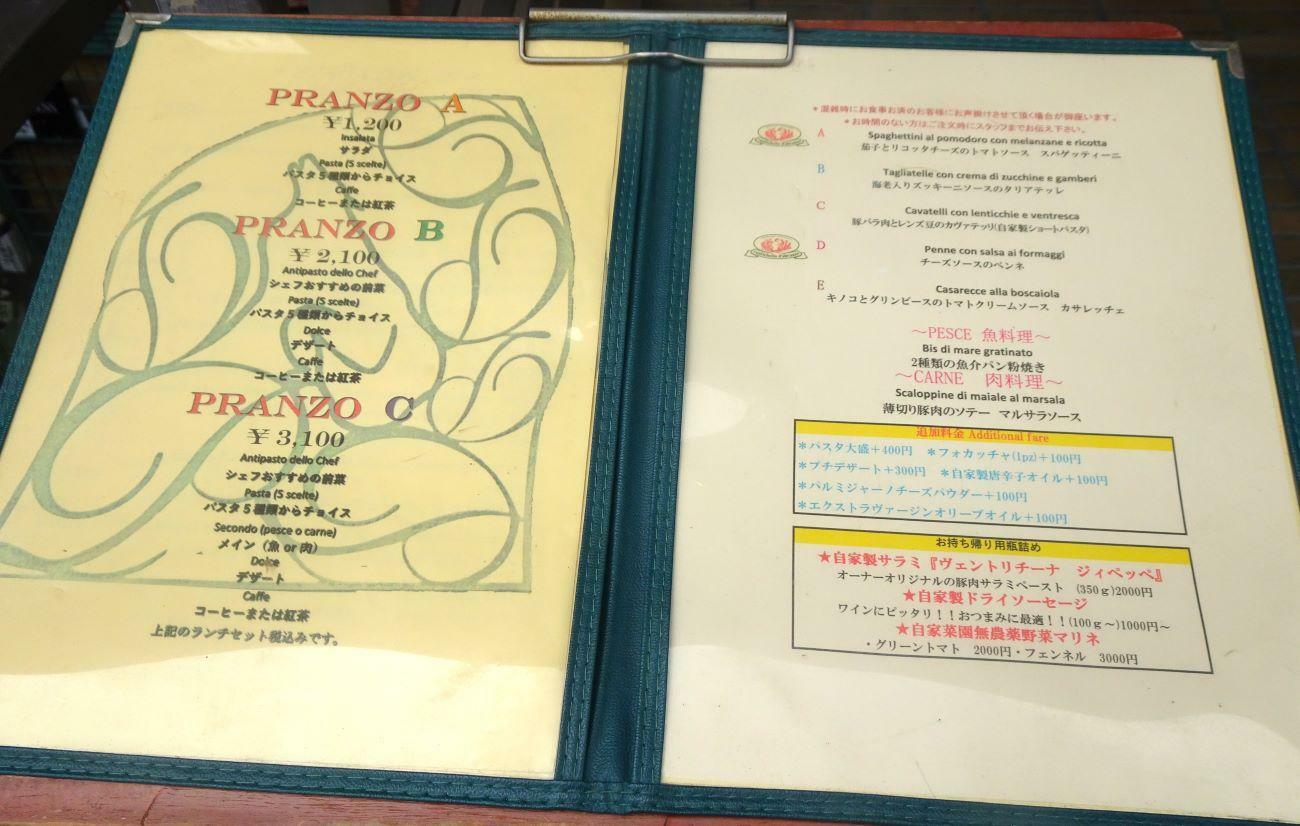 PRANZO A
¥1,200
Insalata
サラダ
Pasta (5 scelte)
パスタ５種類からチョイス
Caffe
コーヒーまたは紅茶
PRANZO B
¥ 2,100
Antipasto dello Chef
シェフおすすめの前菜
Pasta (5 scelte)
パスタ５種類からチョイス
Dolce
デザート
Caffe
コーヒーまたは紅茶
PRANZO C
¥ 3,100
Antipasto dello Chef
シェフおすすめの前菜
Pasta (5 scelte)
パスタ５種類からチョイス
Secondo (pesce o carne)
メイン（魚 or 肉）
Dolce
デザート
Caffe
コーヒーまたは紅茶
上記のランチセット税込みです。
＊混雑時にお食事お済のお客様にお声掛けさせて頂く場合が御座います。
＊お時間のない方はご注文時にスタッフまでお伝え下さい。
A Spaghettini al pomodoro con melanzane e ricotta
茄子とリコッタチーズのトマトソース　スパゲッティーニ
B Tagliatelle con crema di zucchine e gamberi
海老入りズッキーニソースのタリアテッレ
C Cavatelli con lenticchie e ventresca
豚バラ肉とレンズ豆のカヴァテッリ(自家製ショートパスタ)
D Penne con salsa ai formaggi
チーズソースのペンネ
E Casarecce alla boscaiola
キノコとグリンピースのトマトクリームソース　カサレッチェ
～PESCE 魚料理～
Bis di mare gratinato
2種類の魚介パン粉焼き
～CARNE　肉料理～
Scaloppine di maiale al marsala
薄切り豚肉のソテー　マルサラソース
追加料金 Additional fare
＊パスタ大盛＋400円　＊フォカッチャ(1pz)＋100円
＊プチデザート＋300円　＊自家製唐辛子オイル＋100円
＊パルミジャーノチーズパウダー＋100円
＊エクストラヴァージンオリーブオイル＋100円
お持ち帰り用瓶詰め
★自家製サラミ『ヴェントリチーナ　ジィペッペ』
オーナーオリジナルの豚肉サラミペースト　(350ｇ)2000円
★自家製ドライソーセージ
ワインにピッタリ！！おつまみに最適！！(100ｇ～)1000円～
★自家菜園無農薬野菜マリネ
・グリーントマト　2000円・フェンネル　3000円